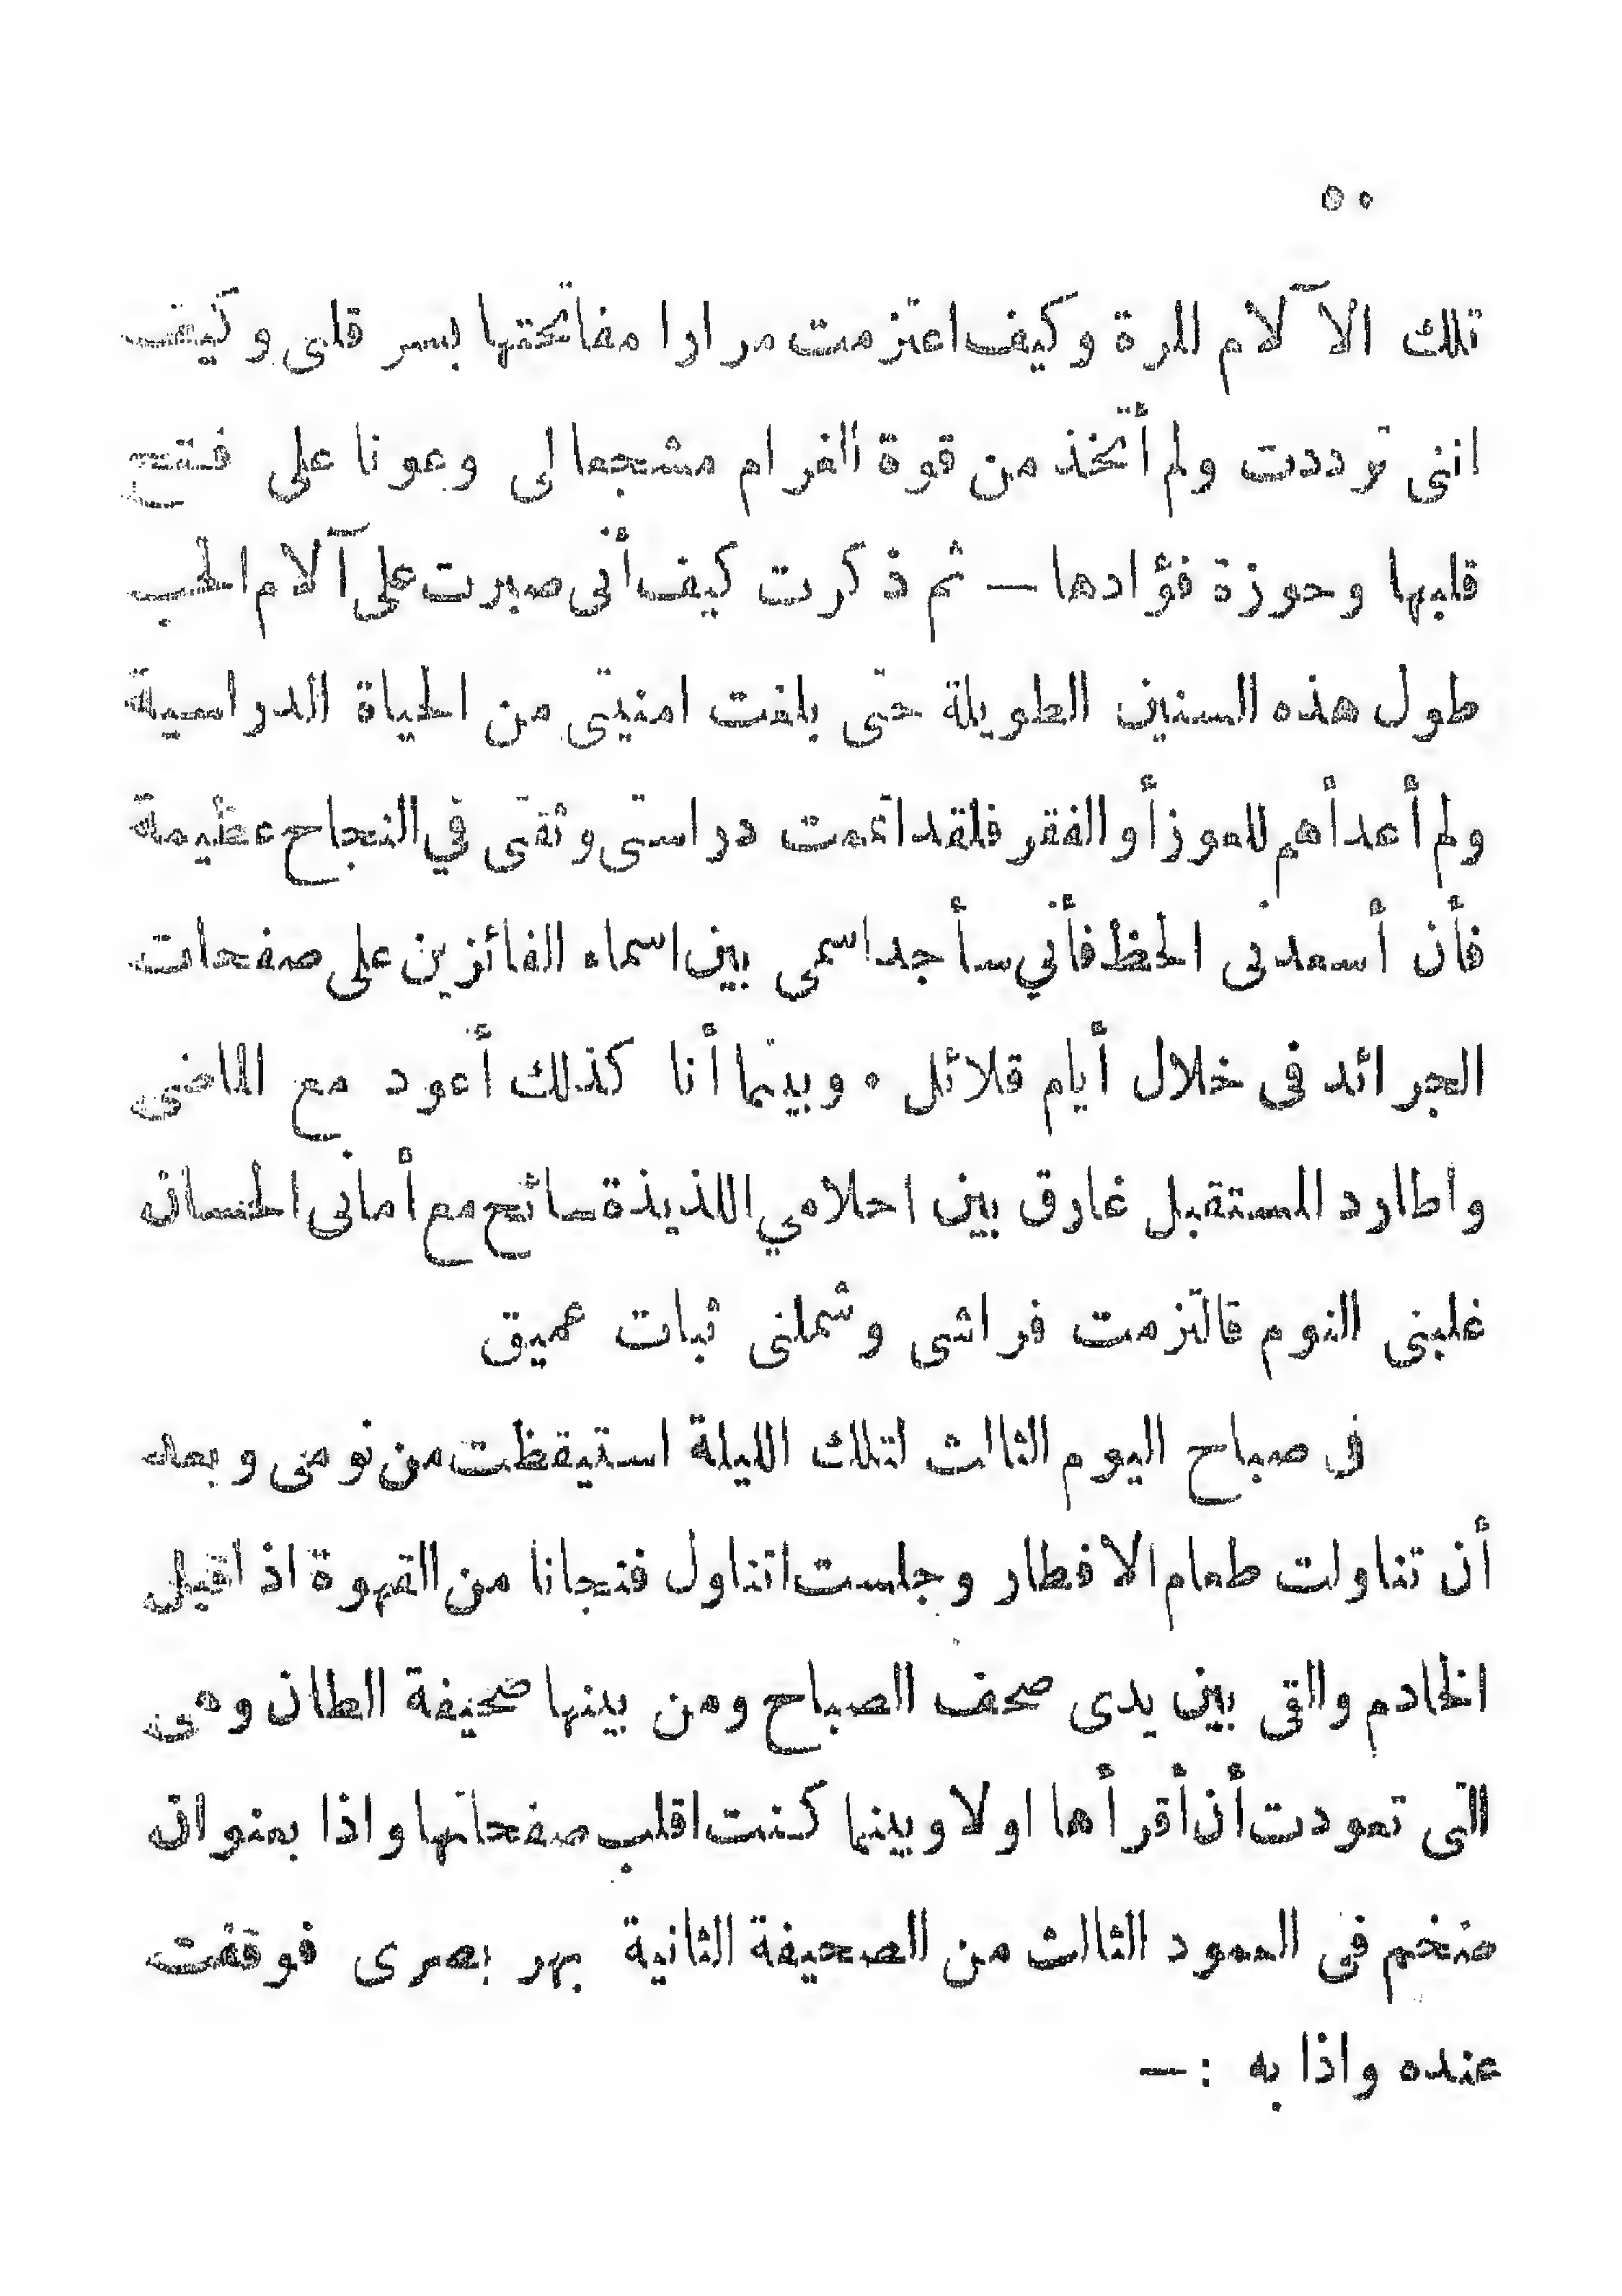 ٥٠
تلك الآلام المرة وكيف اعتزمت مرارا مفاتحتها بسر قلبى وكيف
اننى ترددت ولم أتخذ من قوة الغرام مشجعا لى وعونا على فتح
قلبها وحوزة فؤادها — ثم ذكرت كيف أنى صبرت على آلام الحب
طول هذه السنين الطويلة حتى بلغت امنيتى من الحياة الدراسية
ولم أعد أهم للعوز أو الفقر فلقد اتممت دراستى وثقتى في النجاح عظيمة
فأن أسعدنى الحظ فأني سأجد اسمى بين اسماء الفائزين على صفحات
الجرائد فى خلال أيام قلائل . وبينما أنا كذلك أعود مع الماضى
واطارد المستقبل غارق بين احلامي اللذيذة سائح مع أمانى الحسان
غلبنى النوم فالتزمت فراشى وشملنى ثبات عميق
فى صباح اليوم الثالث لتلك الليلة استيقظت من نومى وبعد
أن تناولت طعام الافطار وجلست اتناول فنجانا من القهوة اذ اقبل
الخادم والقى بين يدى صحف الصباح ومن بينها صحيفة الطان وهى
التى تعودت أن أقرأها اولا وبينما كنت اقلب صفحاتها واذا بعنوان
ضخم فى العمود الثالث من الصحيفة الثانية بهر بصرى فوقفت
عنده واذا به : —